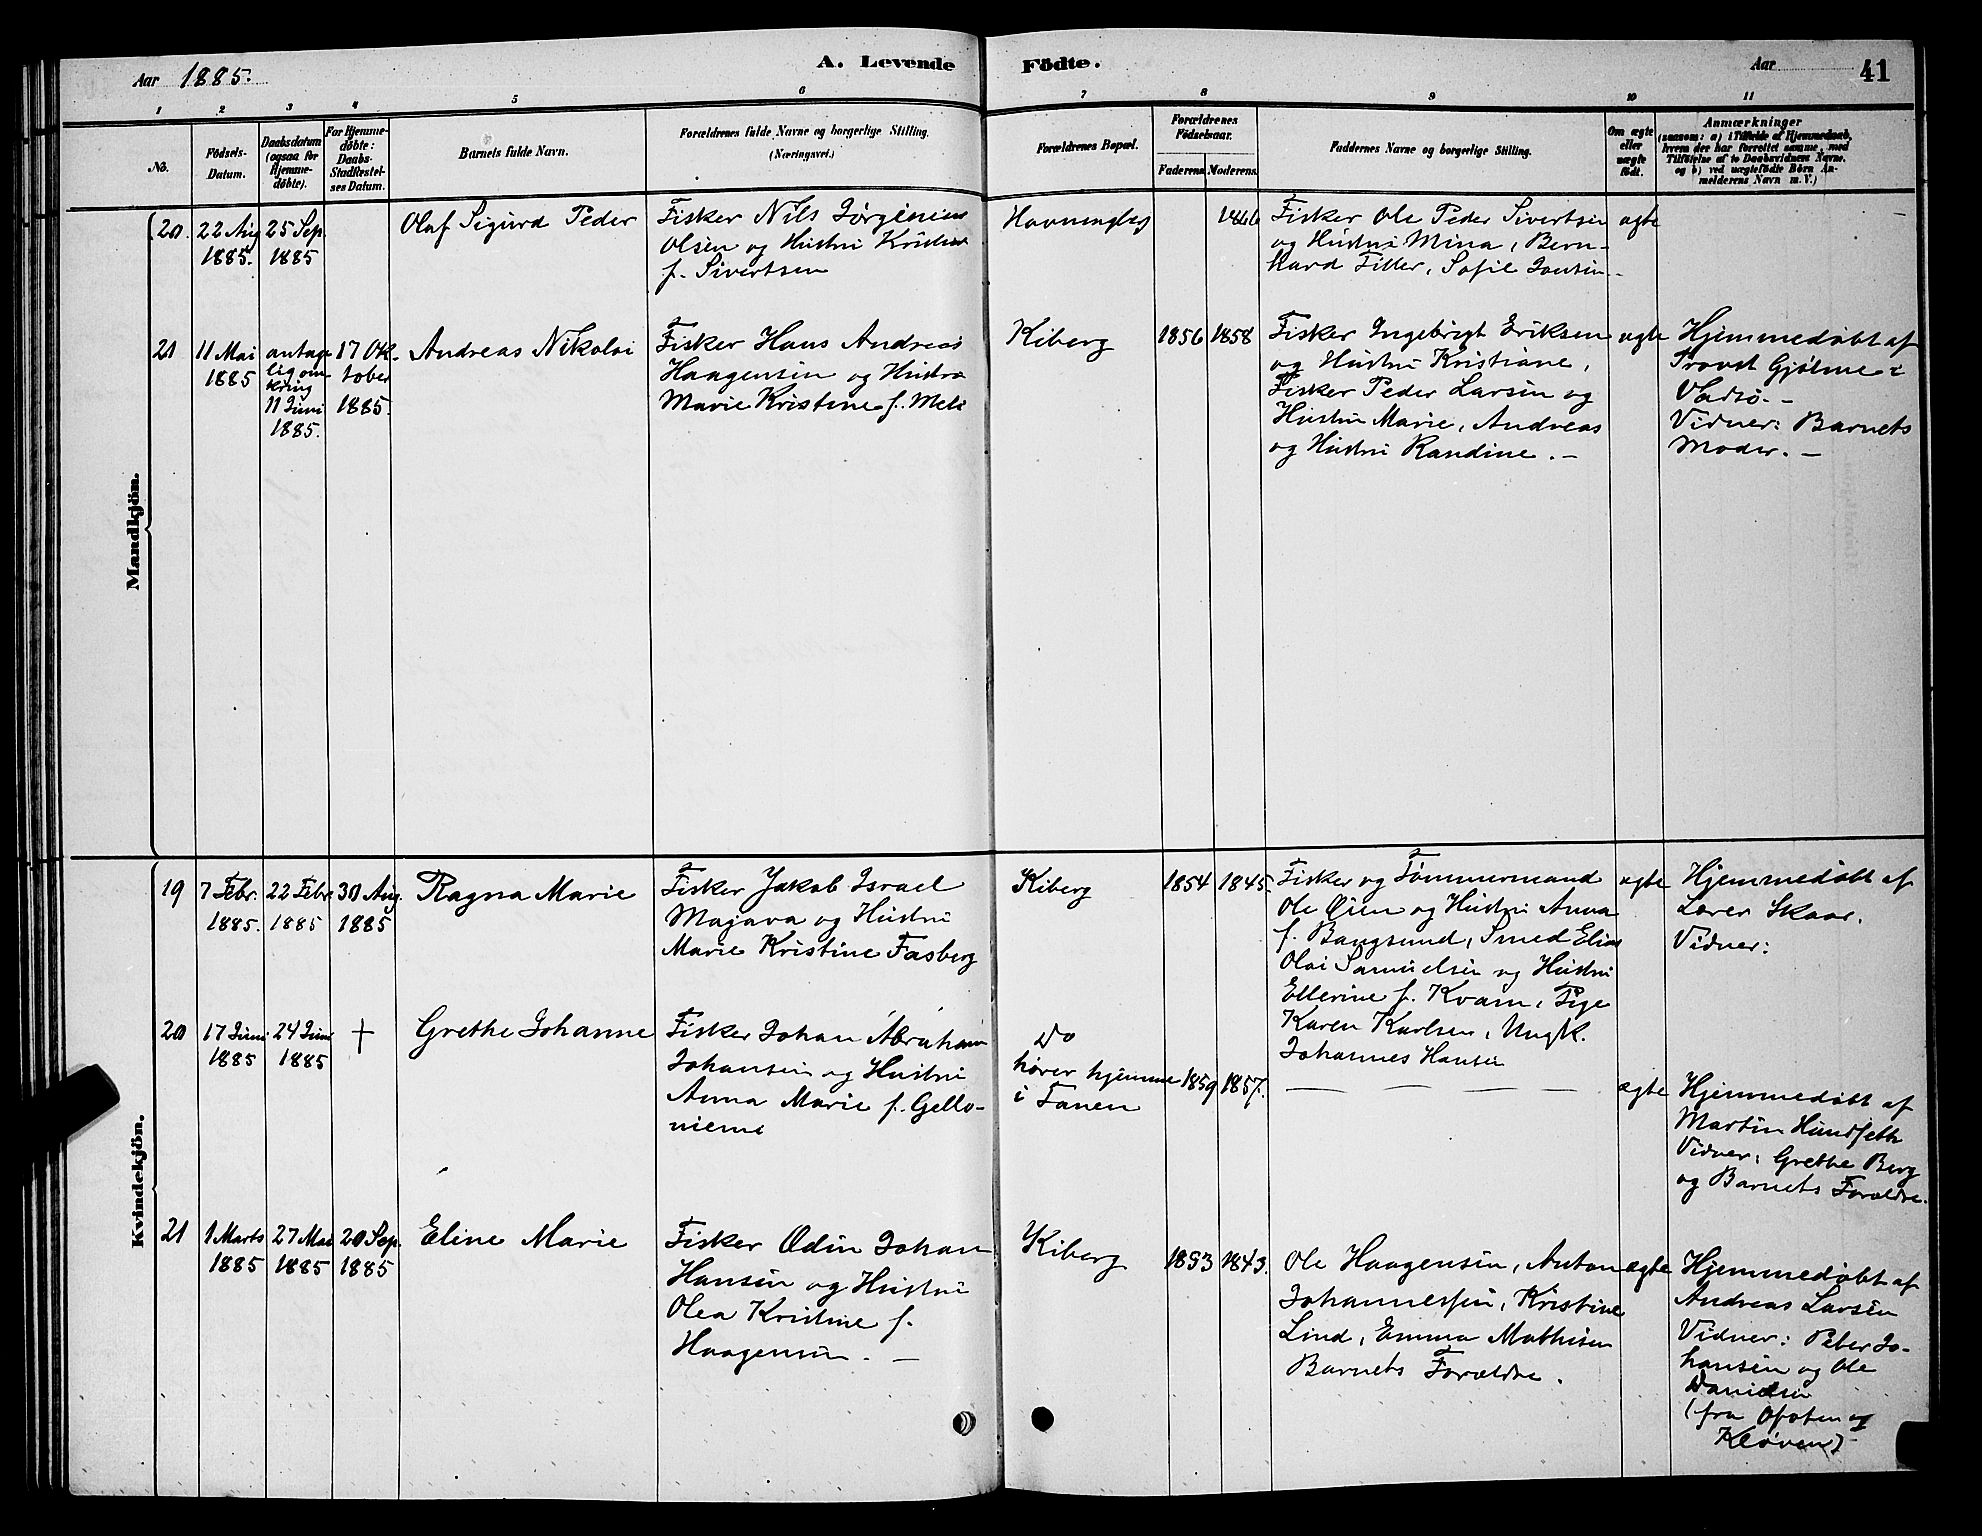 Aar 1885.
A. Levende Födte.
Aar
41
1 2 3 4 5 6 7 8 9 10 11
No.
Födsels-
Datum.
Daabsdatum
(ogsaa for
Hjemme-
döbte).
For Hjemme-
döbte:
Daabs-
Stadfæstel-
ses Datum.
Barnets fulde Navn.
Forældrenes fulde Navne og borgerlige Stilling.
(Næringsvei.)
Forældrenes Bopæl.
Forældrenes
Födselsaar.
Faderens. Moderens.
Faddernes Navne og borgerlige Stilling.
Om ægte
eller
uægte
födt.
Anmærkninger
(saasom: a) i Tilfælde af Hjemmedaab,
hvem der har forrettet samme, med
Tilföielse af to Daabsvidners Navne,
og b) ved uægtefödte Börn An-
melderens Navn m. V.)
Mandkjön.
20.
22 Aug
1885.
25 Sep.
1885
Olaf Sigurd Peder
Fisker Nils Jørginius
Olsen og Hustru Kristine
f. Sivertsen
1846
Fisker Ole Peder Sivertsen
og Hustru Mina, Bern-
hard Filler, Sofie
ægte
21
11 Mai
1885
antage-
lig om-
kring
11 Juni
1885.
17 Ok-
tober
1885.
Andreas Nikolai
Fisker Hans Andreas
Haagensen og Hustru
Marie Kristine f.
Kiberg
1856
1858
Fisker Ingebrigt Eriksen
og Hustru Kristiane,
Fisker Peder Larsen og
Hustru Marie, Andreas
og Hustru Randine. —
ægte
Hjemmedøbt af
Provst Gjølme i
Vadsø. —
Vidner: Barnets
Moder. —
Kvindekjön.
19
7 Febr.
1885.
22 Febr.
1885
30 Aug.
1885
Ragna Marie
Fisker Jakob Israel
Majava og Hustru
Marie Kristine Fasberg
Kiberg
1854
1845.
Fisker og Tømmermand
Ole Øien og Hustru Anna
f. Bangsund, Smed Elias
Olai Samuelsen og Hustru
Ellerine f. Kvam, Pige
Karen Karlsen, Ungk.
Johannes Hansen
ægte
Hjemmedøbt af
Lærer Skaar.
Vidner:
20
17 Juni
1885
24 Juni
1885
+
Grethe Johanne
Fisker Johan Abraham
Johansen og Hustru
Anna Marie f. Gello-
nieme
Do
hører hjemme
i Tanen
1859
1857.
— — — — —
ægte
Hjemmedøbt af
Martin Hundseth
Vidner: Grethe Berg
og Barnets Forældre.
21
1 Marts
1885
27 Mai
1885
20 Sep.
1885
Eline Marie
Fisker Odin Johan
Hansen og Hustru
Olea Kristine f.
Haagensen. —
Kiberg
1853
1843.
Ole Haagensen, Anton
Johannessen, Kristine
Lind, Emma Mathisen
Barnets Forældre.
ægte
Hjemmedøbt af
Andreas Larsen
Vidner: Peber Jo-
hansen og Ole
Danielsen
(fra Ofoten og
Kløven) —